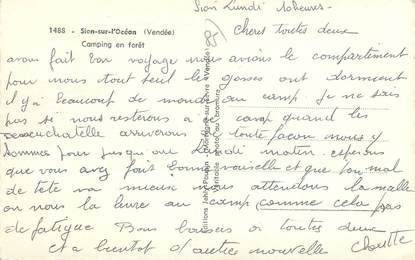 Sion Lundi 10 heures -
1488 - Sion-sur-l'Océan (Vendée)
Camping en forêt
Chers toutes deux
avons fait bon voyage nous avions le compartiment
pour nous tout seul les gosses ont dorment
il y a beaucoup de monde au camp. Je ne sais
pas si nous resterons a ce camp quand les
arriverons de toute façon nous y
sommes pour jusqu'au Lundi matin. esperons
que vous avez fait bonne et que ton mal
de tête va mieux nous attendons la malle
on nous la livre au camp comme cela pas
de fatigue Bons baisers a toutes deux
et a bientot d'autre nouvelle
Éditions
Véritable photo au bromure